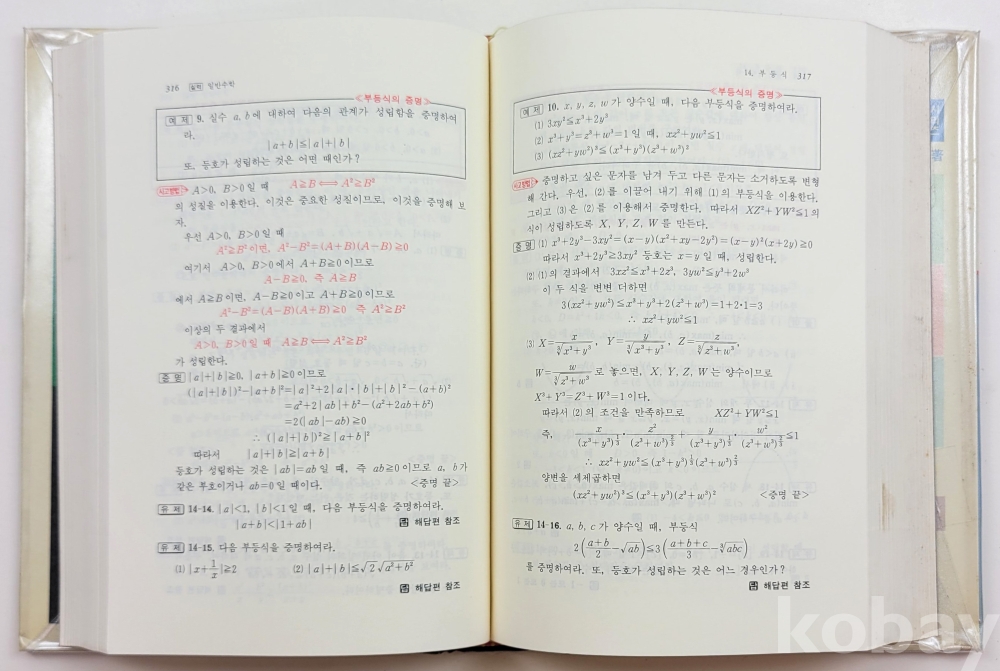 316 실력 일반수학
≪부등식의 증명≫
예제 9. 실수 a, b에 대하여 다음의 관계가 성립함을 증명하여
라.
|a+b|≦|a|+|b|
또, 등호가 성립하는 것은 어떤 때인가?
사고방법 A>0, B>0일 때 A≧B⟺A²≧B²
의 성질을 이용한다. 이것은 중요한 성질이므로, 이것을 증명해 보
자.
우선 A>0, B>0일 때
A²≧B²이면, A²-B²=(A+B)(A-B)≧0
여기서 A>0, B>0에서 A+B≧0이므로
A-B≧0, 즉 A≧B
에서 A≧B이면, A-B≧0이고 A+B≧0이므로
A²-B²=(A-B)(A+B)≧0 즉 A²≧B²
이상의 두 결과에서
A>0, B>0일 때 A≧B⟺A²≧B²
가 성립한다.
증명 |a|+|b|≧0, |a+b|≧0이므로
(|a|+|b|)²-|a+b|²=|a|²+2|a|·|b|+|b|²-(a+b)²
=a²+2|ab|+b²-(a²+2ab+b²)
=2(|ab|-ab)≧0
∴ (|a|+|b|)²≧|a+b|²
따라서 |a|+|b|≧|a+b|
등호가 성립하는 것은 |ab|=ab일 때, 즉 ab≧0이므로 a, b가
같은 부호이거나 ab=0일 때이다. <증명 끝>
유제 14-14. |a|<1, |b|<1일 때, 다음 부등식을 증명하여라.
|a+b|<|1+ab|
답 해답편 참조
유제 14-15. 다음 부등식을 증명하여라.
(1) |x+1/x|≧2 (2) |a|+|b|≦√2 √(a²+b²)
답 해답편 참조
14. 부등식 317
≪부등식의 증명≫
예제 10. x, y, z, w가 양수일 때, 다음 부등식을 증명하여라.
(1) 3xy²≦x³+2y³
(2) x³+y³=z³+w³=1일 때, xz²+yw²≦1
(3) (xz²+yw²)³≦(x³+y³)(z³+w³)²
사고방법 증명하고 싶은 문자를 남겨 두고 다른 문자는 소거하도록 변형
해 간다. 우선, (2)를 이끌어 내기 위해 (1)의 부등식을 이용한다.
그리고 (3)은 (2)를 이용해서 증명한다. 따라서 XZ²+YW²≦1의
식이 성립하도록 X, Y, Z, W를 만든다.
증명 (1) x³+2y³-3xy²=(x-y)(x²+xy-2y²)=(x-y)²(x+2y)≧0
따라서 x³+2y³≧3xy² 등호는 x=y일 때, 성립한다.
(2) (1)의 결과에서 3xz²≦x³+2z³, 3yw²≦y³+2w³
이 두 식을 변변 더하면
3(xz²+yw²)≦x³+y³+2(z³+w³)=1+2·1=3
∴ xz²+yw²≦1
(3) X=x/∛(x³+y³), Y=y/∛(x³+y³), Z=z/∛(z³+w³),
W=w/∛(z³+w³)로 놓으면, X, Y, Z, W는 양수이므로
X³+Y³=Z³+W³=1이다.
따라서 (2)의 조건을 만족하므로 XZ²+YW²≦1
즉, x/(x³+y³)^(1/3)·z²/(z³+w³)^(2/3)+y/(x³+y³)^(1/3)·w²/(z³+w³)^(2/3)≦1
∴ xz²+yw²≦(x³+y³)^(1/3)(z³+w³)^(2/3)
양변을 세제곱하면
(xz²+yw²)³≦(x³+y³)(z³+w³)² <증명 끝>
유제 14-16. a, b, c가 양수일 때, 부등식
2((a+b)/2-√ab)≦3((a+b+c)/3-∛abc)
를 증명하여라. 또, 등호가 성립하는 것은 어느 경우인가?
답 해답편 참조
著
kobay